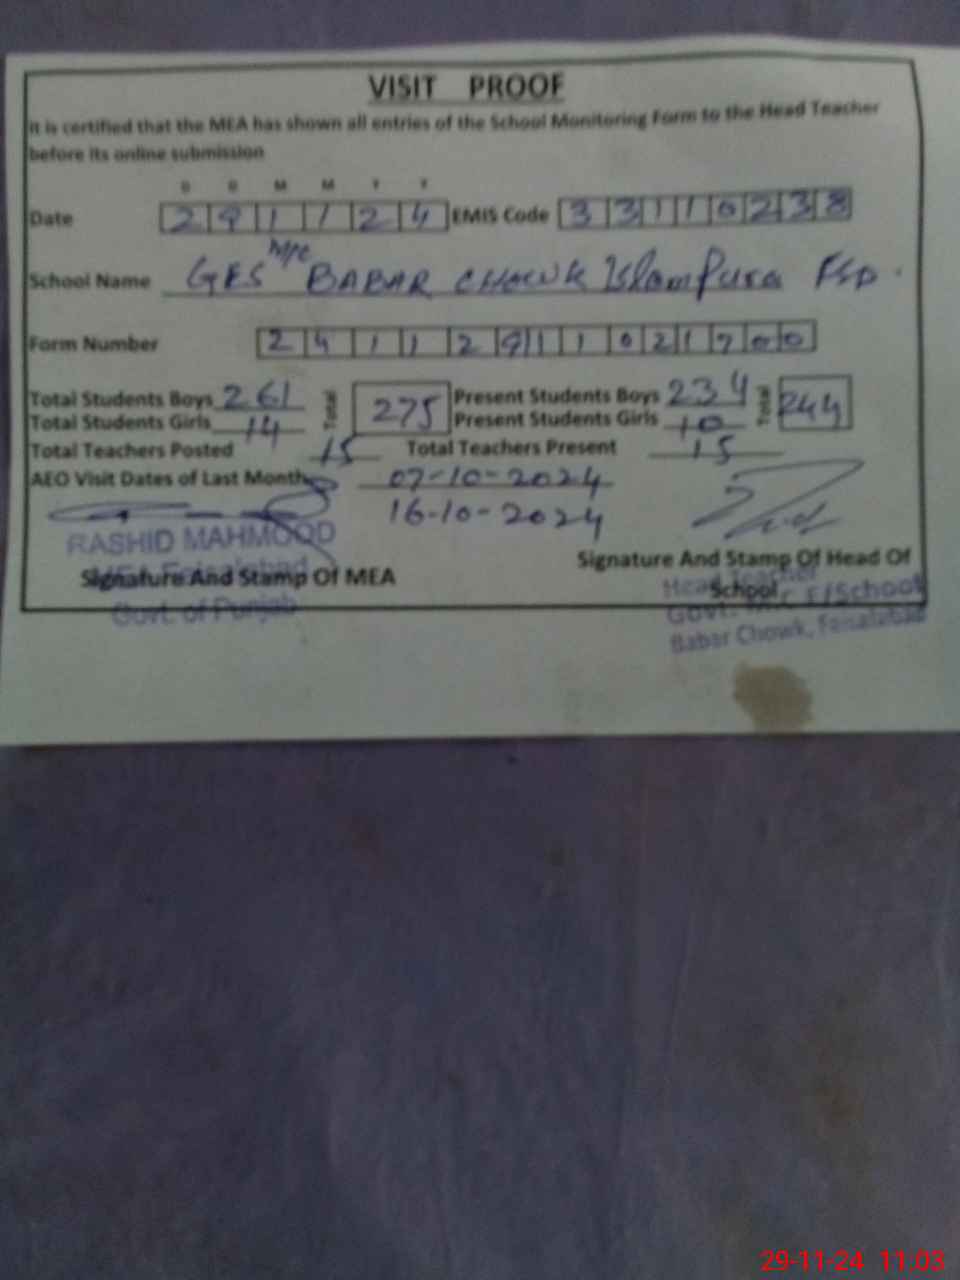 VISIT PROOF
It is certified that the MEA has shown all entries of the School Monitoring Form to the Head Teacher
before its online submission
D D M M Y Y
Date 291124 EMIS Code 33110238
School Name GES M/C BABAR CHOWK IslamPura FSD.
Form Number 24112911021700
Total Students Boys 261 Total 275 Present Students Boys 234 Total 244
Total Students Girls 14 Present Students Girls 10
Total Teachers Posted 15 Total Teachers Present 15
AEO Visit Dates of Last Month 07-10-2024
16-10-2024
RASHID MAHMOOD
MEA Faisalabad
Govt. of Punjab
Signature And Stamp Of MEA
Signature And Stamp Of Head Of
School
Head Teacher
Govt. M.C E/School
Babar Chowk, Faisalabad
29-11-24 11:03